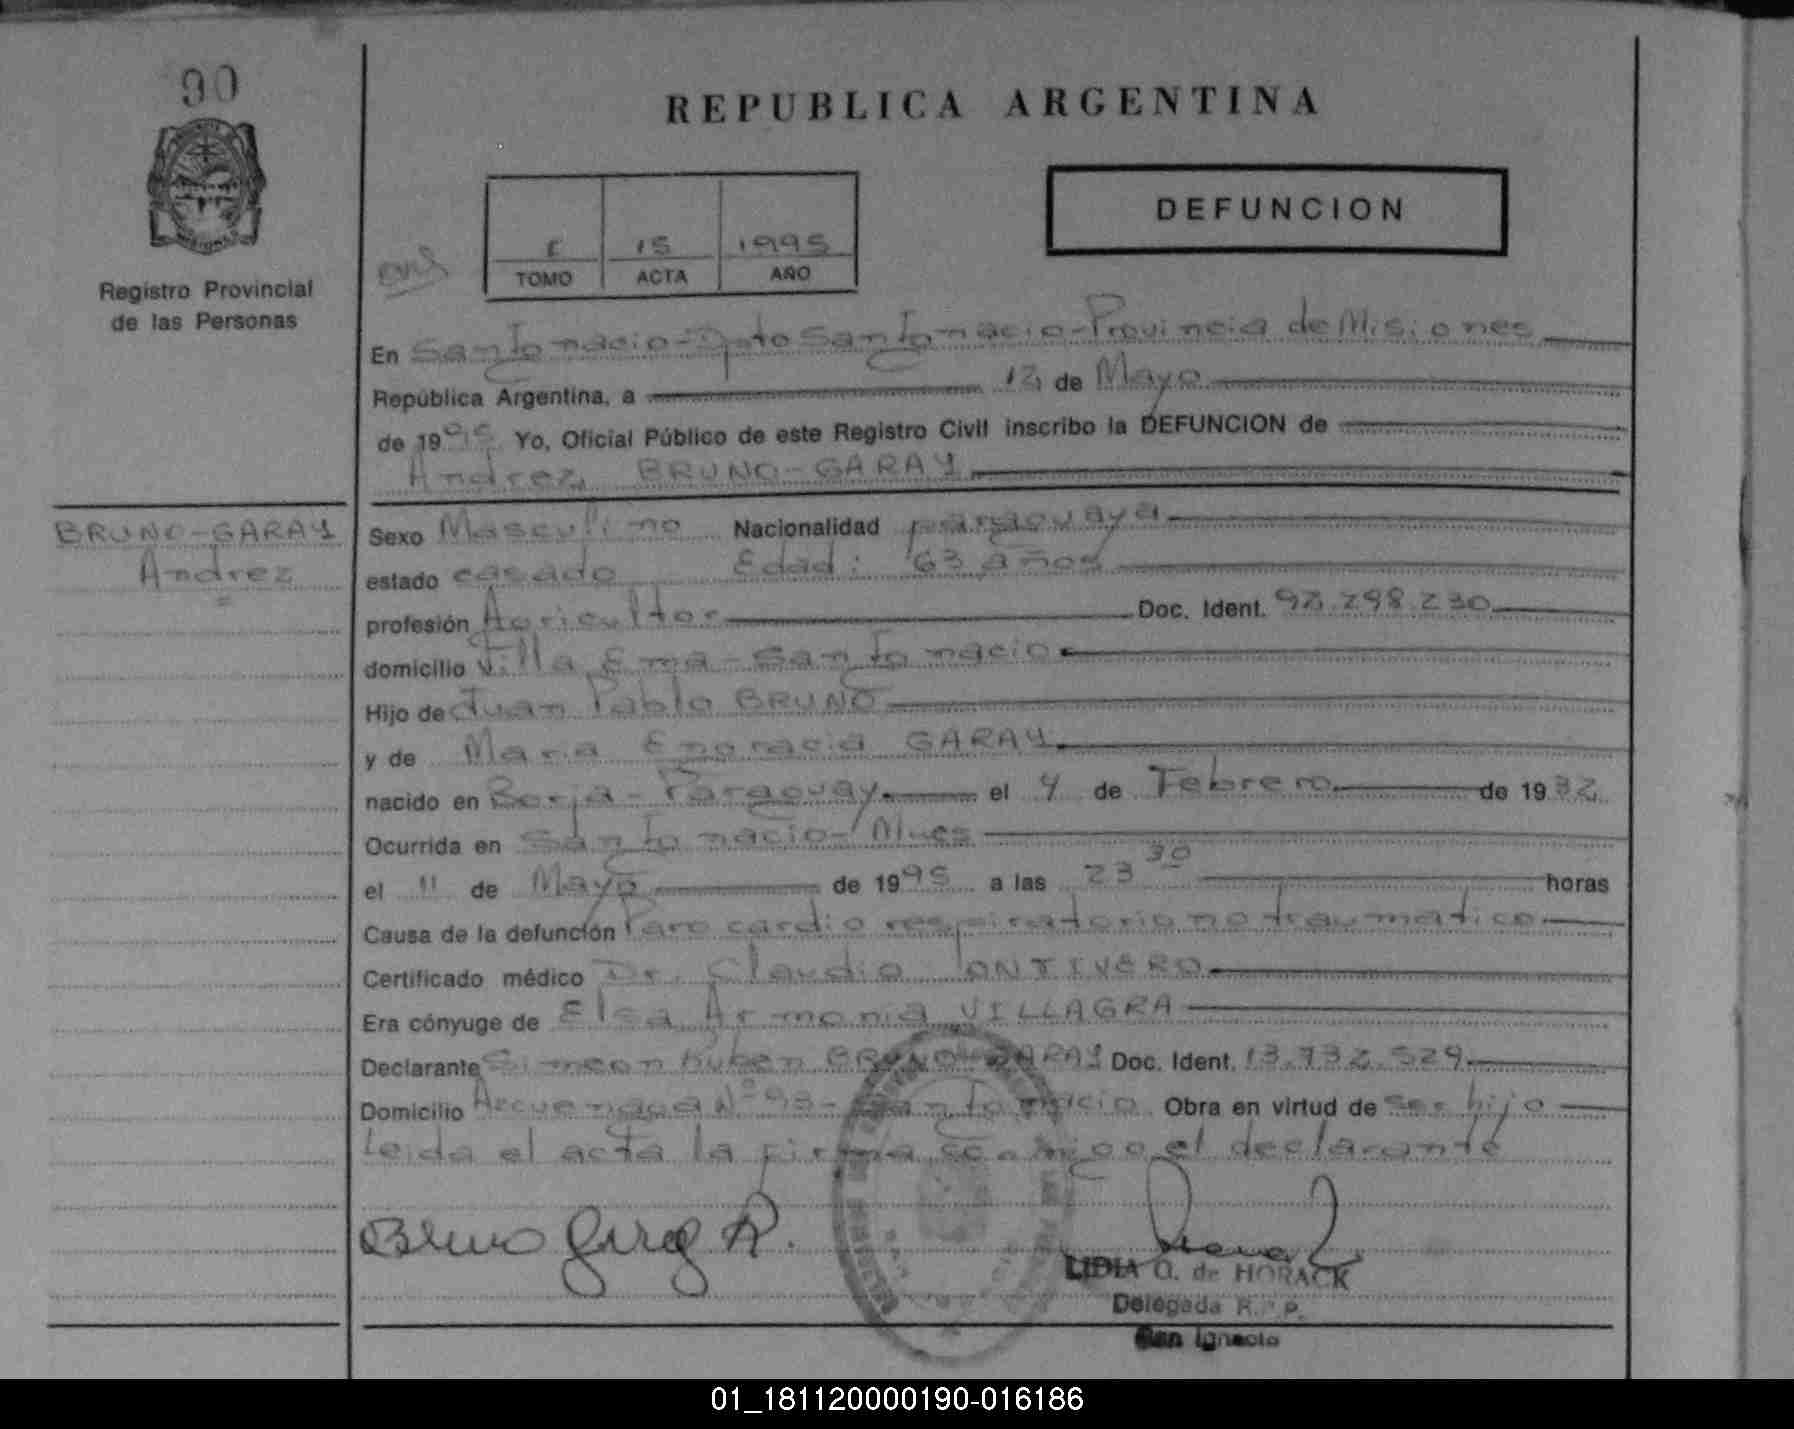 90
REPUBLICA ARGENTINA
DEFUNCION
I 15 1995
TOMO ACTA AÑO
Registro Provincial
de las Personas
En San Ignacio-Dpto San Ignacio-Provincia de Misiones
República Argentina, a 12 de Mayo
de 1995 Yo, Oficial Público de este Registro Civil inscribo la DEFUNCION de
Andrez BRUNO-GARAY
BRUNO-GARAY
Andrez
Sexo Masculino Nacionalidad paraguaya
estado casado Edad: 63 años
profesión Agricultor Doc. Ident. 92.298.230
domicilio Villa Ema-San Ignacio
Hijo de Juan Pablo BRUNO
y de Maria Engracia GARAY
nacido en Borja-Paraguay el 4 de Febrero de 1932
Ocurrida en San Ignacio-Mnes
el 11 de Mayo de 1995 a las 23 30 horas
Causa de la defunción Paro cardio respiratorio no traumatico
Certificado médico Dr. Claudio ONTIVERO
Era cónyuge de Elsa Armonia VILLAGRA
Declarante Simeon Ruben BRUNO-GARAY Doc. Ident. 13.732.529
Domicilio Azcuenaga Nº 98-San Ignacio Obra en virtud de ser hijo
Leida el acta la firma conmigo el declarante
Bruno Garay R.
LIDIA O. de HORACK
Delegada R.P.P.
San Ignacio
01_181120000190-016186